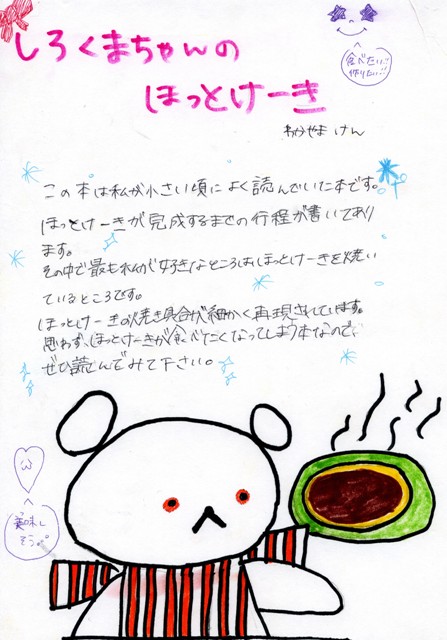 しろくまちゃんの
ほっとけーき
わかやま けん
食べたい!!
作りたい!!
この本は私が小さい頃によく読んでいた本です。
ほっとけーきが完成するまでの行程が書いてあり
ます。
その中で最も私が好きなところはほっとけーきを焼い
ているところです。
ほっとけーきの焼き具合が細かく再現されています。
思わず、ほっとけーきが食べたくなってしまう本なので、
ぜひ読んでみて下さい。
美味し
そう。